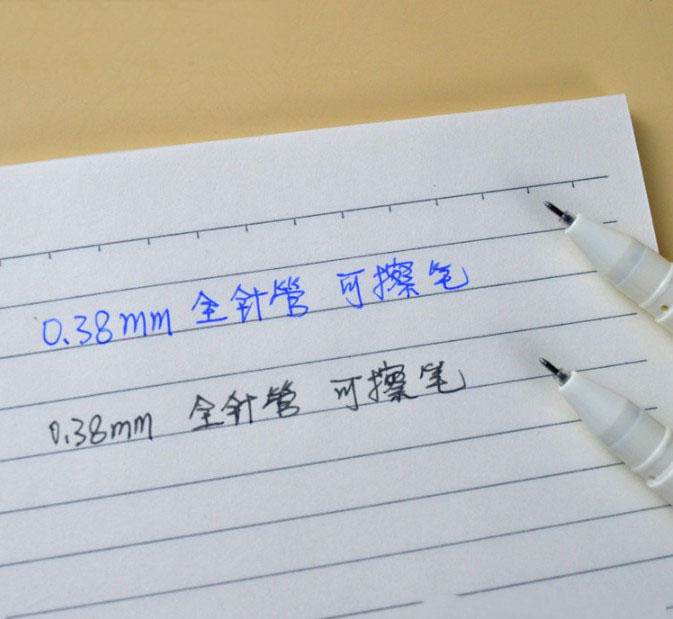 0.38mm 全针管 可擦笔
0.38mm 全针管 可擦笔